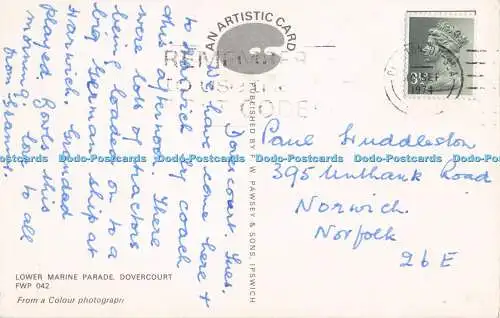 Dovercourt. Tues.
We have come here +
to Harwich by coach
this afternoon. There
were lots of tractors
being loaded on to a
big German ship at
Harwich. Grandad
played Bowls this
morning. love to all
from Grannie.
AN ARTISTIC CARD
PUBLISHED BY F. W. PAWSEY & SONS, IPSWICH
REMEMBER
TO USE THE
POST CODE
SEP
1974
Paul Huddleston
395 Unthank Road
Norwich.
Norfolk
26E
LOWER MARINE PARADE, DOVERCOURT
FWP 042
From a Colour photograph
Dodo-Postcards Dodo-Postcards Dodo-Postcards Dodo-Postcards Dodo-Postcards